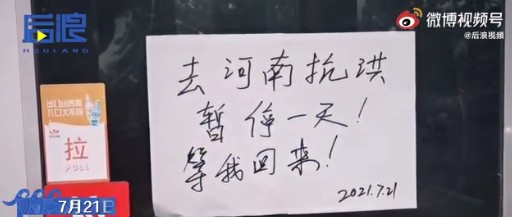 后浪
HOULANG
微博视频号
@后浪视频
去河南抗洪
暂停一天！
等我回来！
2021.7.21
拉
7月21日